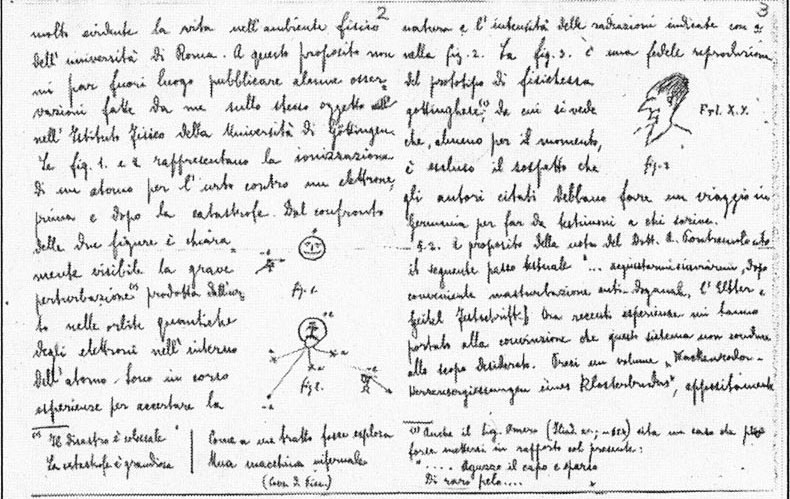 2
molto evidente la vita nell'ambiente fisico
dell'università di Roma. A questo proposito non
mi par fuori luogo pubblicare alcune osser=
vazioni fatte da me sullo stesso oggetto
nell'Istituto Fisico della Università di Göttingen.
Le fig. 1. e 2 rappresentano la ionizzazione
di un atomo per l'urto contro un elettrone,
prima e dopo la catastrofe. Dal confronto
delle due figure è chiara=
mente visibile la grave
perturbazione(1) prodotta dall'ur=
to nelle orbite quantiche
degli elettroni nell'interno
dell'atomo. Sono in corso
esperienze per accertare la
fig. 1.
fig. 2.
(1) Il disastro è colossale
La catastrofe è grandiosa
Come a un tratto fosse esplosa
Una macchina infernale
3
natura e l'intensità delle radiazioni indicate con a
nella fig. 2. La fig. 3. è una fedele reproduzione
del prototipo di fisichessa
gottinghese(1), da cui si vede
che, almeno per il momento,
è escluso il sospetto che
gli autori citati debbano fare un viaggio in
Germania per far da testimoni a chi scrive.
Frl. X. Y.
fig. 3
§. 2. A proposito della nota del Dott. A. Pontremoli cito
il seguente passo testuale "... dopo
conveniente masturbazione anti-doganale, l'Elster e
Geitel Festschrift. Ora recenti esperienze mi hanno
portato alla convinzione che questo sistema non conduce
allo scopo desiderato. Presi un volume "Wackenroder-
Herzensergiessungen eines Klosterbruders", appositamente
(1) Anche il Sig. Omero cita un caso da
forse mettersi in rapporto col presente:
".... Aguzzo il capo e sparso
Di raro pelo....